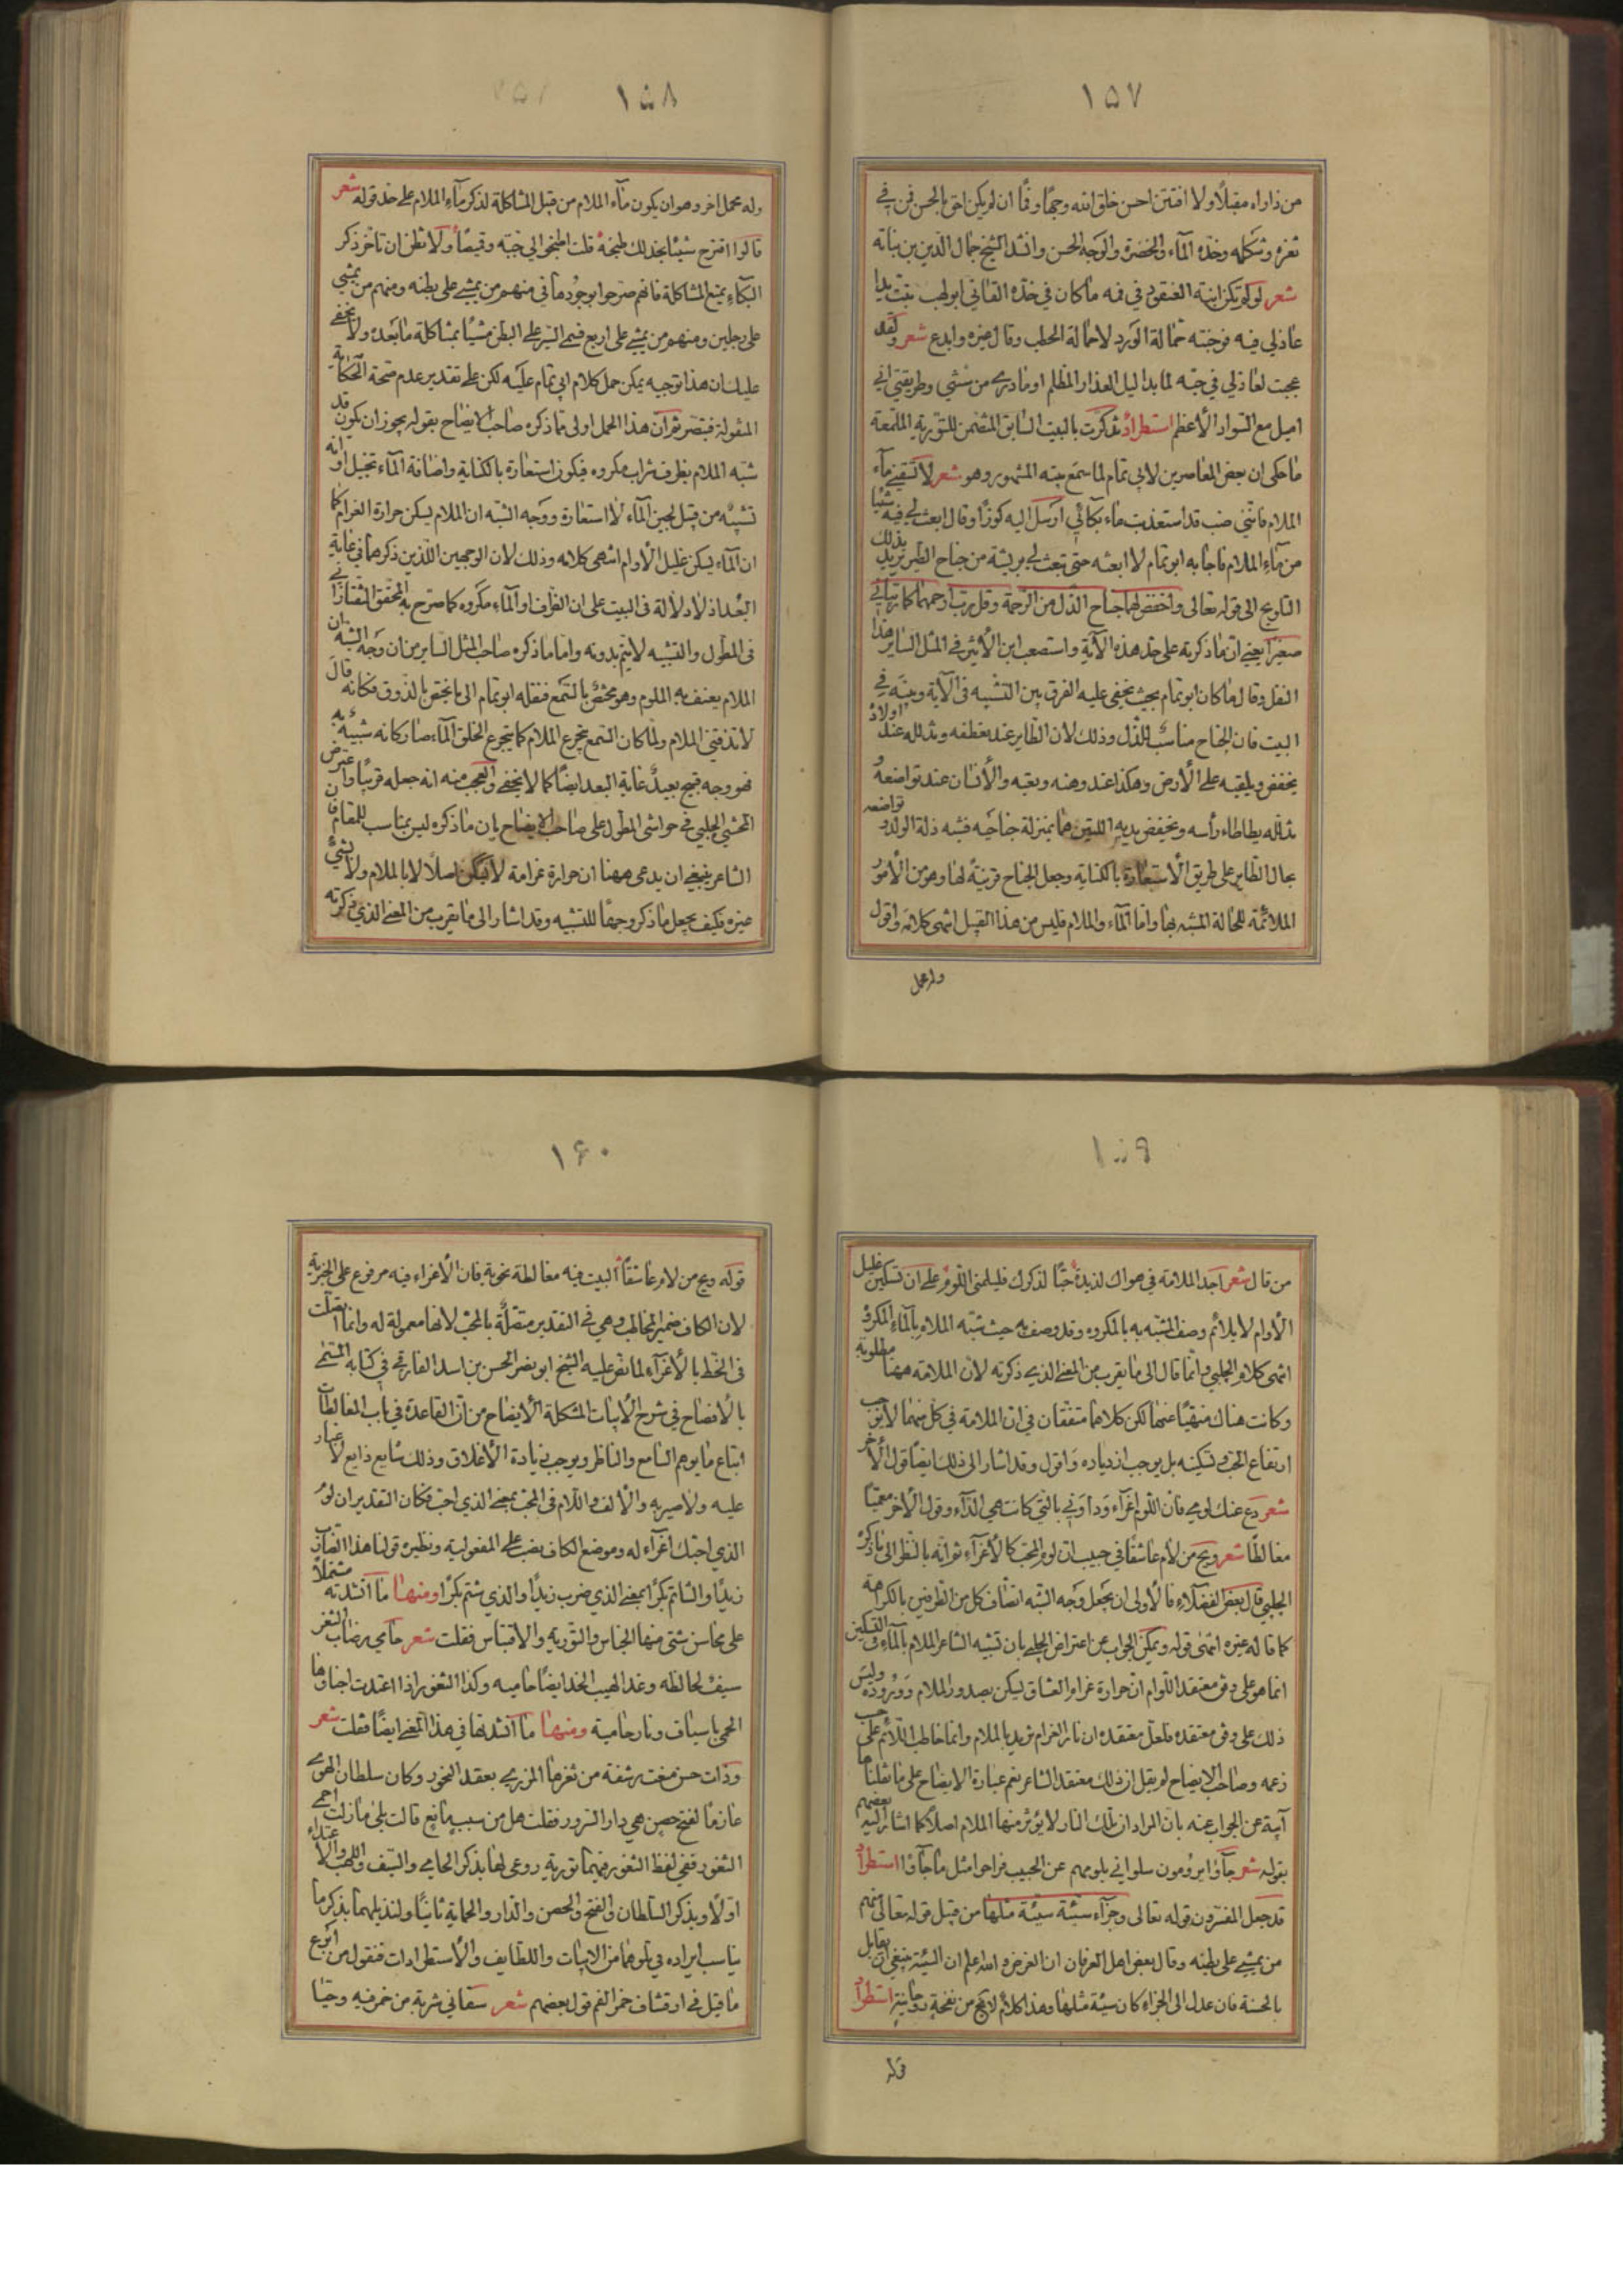 ١٥٧
من ذا راه مقبلا ولا افتتن احسن خلق الله وجها وفما ان لم يكن احق بالحسن فمن في
ثغره وشكله وخده الماء والخضرة والوجه الحسن وانشد الشيخ جمال الدين بن نباته
شعر لو لم تكن ابنة العنقود في فمه ما كان في خده القاني ابو لهب تبت يدا
عاذلي فيه فوجنته حمالة الورد لا حمالة الحطب وقال غيره وابدع شعر ولقد
عجبت لعاذلي في حبه لما بدا ليل العذار المظلم اوما درى من سنتي وطريقتي اني
اميل مع السواد الأعظم استطراد تذكرت بالبيت السابق المتضمن للتورية الملمعة
ما حكى ان بعض المعاصرين لابي تمام لما سمع بيته المشهور وهو شعر لا تسقني ماء
الملام فانني صب قد استعذبت ماء بكائي ارسل اليه كوزا وقال ابعث لي فيه شيئا
من ماء الملام فاجابه ابو تمام لا ابعثه حتى تبعث لي بريشة من جناح الطير يريد بذلك
التلويح الى قوله تعالى واخفض لهما جناح الذل من الرحمة وقل رب ارحمهما كما ربياني
صغيرا يعني ان ما ذكرته على حد هذه الآية واستصعب ابن الأثير في المثل الساير هذا
النقل وقال ما كان ابو تمام بحيث يخفى عليه الفرق بين التشبيه في الآية وبينه في
البيت فان الجناح مناسب للذل وذلك لان الطاير عند تعطفه وتذلله عند اولاده
يخفض ويلقيه على الأرض وهكذا عند وهنه وتعبه والأنسان عند تواضعه
تذلله يطاطاء رأسه ويخفض يديه اللتين هما بمنزلة جناحيه فشبه ذلة الولد وتواضعه
بحال الطاير على طريق الأستعارة بالكناية وجعل الجناح قرينة لها وهو من الأمور
الملائمة للحالة المشبه بها واما الماء والملام فليس من هذا القبيل انتهى كلامه واقول
وله محمل
١٥٨
وله محمل اخر وهو ان يكون ماء الملام من قبيل المشاكلة لذكر ماء الملام على حد قوله شعر
قالوا اقترح شيئا نجد لك طبخه قلت اطبخوا لي جبة وقميصا ولا تظن ان تاخر ذكر
البكاء يمنع المشاكلة فانهم صرحوا بوجودها في منهم من يمشي على بطنه ومنهم من يمشي
على رجلين ومنهم من يمشي على اربع فسمى السير على البطن مشيا بمشاكلة ما بعده ولا يخفى
عليك ان هذا توجيه يمكن حمل كلام ابي تمام عليه لكن على تقدير عدم صحة الحكاية
المنقولة فتبصر ثم ان هذا الحمل اولى مما ذكره صاحب الايضاح بقوله يجوز ان يكون قد
شبه الملام بظرف شراب مكروه فيكون استعارة بالكناية واضافة الماء تخييل او انه
تشبيه من قبيل لجين الماء لا استعارة ووجه الشبه ان الملام يسكن حرارة الغرام كما
ان الماء يسكن غليل الأوام انتهى كلامه وذلك لان الوجهين اللذين ذكرهما في غاية
البعد اذ لا دلالة في البيت على ان الظرف او الماء مكروه كما صرح به المحقق التفتازاني
في المطول والتشبيه لا يتم بدونه واما ما ذكره صاحب المثل الساير من ان وجه الشبه ان
الملام يعنف به الملوم وهو مختص بالسمع فنقله ابو تمام الى ما يختص بالذوق فكانه قال
لا تذقني الملام ولما كان السمع يتجرع الملام كما يتجرع الحلق الماء صار كانه شبيه به
فهو وجه قبيح بعيد غاية البعد ايضا كما لا يخفى والعجب منه انه جعله قريبا واعترض
المحشي الجلبي في حواشي المطول على صاحب الايضاح بان ما ذكره ليس بمناسب للمقام فان
الشاعر ينبغي ان يدعى ههنا ان حرارة غرامه لا تسكن اصلا لا بالملام ولا بشئ
غيره فكيف يجعل ما ذكر وجها للتشبيه وقد اشار الى ما يقرب من المعنى الذي ذكرته
١٥٩
من قال شعر اجد الملامة في هواك لذيذة حبا لذكرك فليلمني اللوم على ان تسكين غليل
الأوام لا يلائم وصف المشبه به بالمكروه وقد وصف به حيث شبه الملام بالماء المكروه
انتهى كلام الجلبي وانما قال الى ما يقرب من المعنى الذي ذكرته لان الملامة ههنا مطلوبة
وكانت هناك منهيا عنها لكن كلاهما متفقان في ان الملامة في كل منهما لا يوجب
ارتفاع الحب وتسكينه بل يوجب ازدياده واقول وقد اشار الى ذلك ايضا قول الأخر
شعر دع عنك لومي فان اللوم اغراء وداوني بالتي كانت هي الداء وقول الأخر معميا
مغالطا شعر ويح من لام عاشقا في حبيب ان لوم المحب كالأغراء ثم انه بالنظر الى ما ذكره
الجلبي قال بعض الفضلاء فالأولى ان يجعل وجه الشبه اتصاف كل من الطرفين بالكراهة
كما قاله غيره انتهى قوله ويمكن الجواب عن اعتراض الجلبي بان تشبيه الشاعر الملام بالماء في التسكين
انما هو على وفق معتقد اللوام ان حرارة غرام العشاق يسكن بصدور الملام ووروده وليس
ذلك على وفق معتقده فلعل معتقده ان نار الغرام تزيد بالملام وانما خاطب اللائم على حسب
زعمه وصاحب الايضاح لم يقل ان ذلك معتقد الشاعر نعم عبارة الايضاح على ما نقلناها
آبية عن الجواب عنه بان المراد ان تلك النار لا يؤثر منها الملام اصلا كما اشار اليه بعضهم
بقوله شعر جاؤا يرومون سلواني بلومهم عن الحبيب فراحوا مثل ما جاؤا استطراد
قد جعل المفسرون قوله تعالى وجزاء سيئة سيئة مثلها من قبيل قوله تعالى فمنهم
من يمشي على بطنه وقال بعض اهل العرفان ان الغرض والله اعلم ان السيئة ينبغي ان يقابل
بالحسنة فان عدل الى الجزاء كان سيئة مثلها وهذا كلام لا يخ من نفحة روحانية استطراد
قوله
١٦٠
قوله ويح من لام عاشقا البيت فيه مغالطة نحوية فان الأغراء فيه مرفوع على الخبرية
لان الكاف ضمير المخاطب وهي في التقدير متصلة بالمحب لانها معمولة له وانما اتصلت
في الخط بالأغراء لما نص عليه الشيخ ابو نصر الحسن بن اسد الفارقي في كتابه المسمى
بالأفصاح في شرح الأبيات المشكلة الأيضاح من ان القاعدة في باب المغالطات
اتباع ما يوهم السامع والناظر ويوجب زيادة الأغلاق وذلك شايع ذايع لا غبار
عليه ولا ضير به والألف واللام في المحب بمعنى الذي احب فكان التقدير ان لوم
الذي احبك اغراء له وموضع الكاف نصب على المفعولية ونظيره قولنا هذا الضارب
زيدا والشاتم بكرا بمعنى الذي ضرب زيدا والذي شتم بكرا ومنها ما انشدته مشتملا
على محاسن شتى منها الجناس والتورية والاقتباس فقلت شعر حامي رضاب الثغر
سيف لحاظه وغدا لهيب الخد ايضا حاميه وكذا الثغور اذا اغتدت اجنادها
الحمى باسياف ونار حامية ومنها ما انشدتها في هذا المعنى ايضا فقلت شعر
وذات حسن رشفة من ثغرها المزري بعقد النحور وكان سلطان الهوى
عازما لفتح حصن هي دار السرور فقلت هل من سبب مانع قالت بلى ما زلت احمي
الثغور ففي لفظ الثغور فيهما تورية روعى لها بذكر الحامي والسيف واللهب والأعتداء
اولا وبذكر السلطان والفتح والحصن والدار والحماية ثانيا ولنذيلهما بذكر ما
يناسب ايراده في تلوهما من الابيات واللطايف والأستطرادات فنقول من ابدع
ما قيل في ارتشاف خمر الفم قول بعضهم شعر سقاني شربة من خمر فيه وحيا